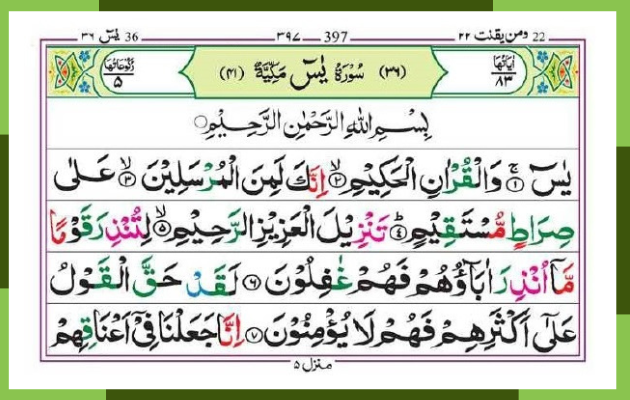 22 ومن يقنت ٢٢
397 ٣٩٧
36 يٰسٓ ٣٦
اٰيَاتُهَا ٨٣
(٣٦) سُوْرَةُ يٰسٓ مَكِّيَّةٌ (٤١)
رُكُوْعَاتُهَا ٥
بِسْمِ اللّٰهِ الرَّحْمٰنِ الرَّحِيْمِ
يٰسٓ ۚ‏﴿۱﴾ وَالْقُرْاٰنِ الْحَكِيْمِ ۙ‏﴿۲﴾ اِنَّكَ لَمِنَ الْمُرْسَلِيْنَ ۙ‏﴿۳﴾ عَلٰى
صِرَاطٍ مُّسْتَقِيْمٍ ؕ‏﴿۴﴾ تَنْزِيْلَ الْعَزِيْزِ الرَّحِيْمِ ۙ‏﴿۵﴾ لِتُنْذِرَ قَوْمًا
مَّاۤ اُنْذِرَ اٰبَآؤُهُمْ فَهُمْ غٰفِلُوْنَ ‏﴿۶﴾ لَقَدْ حَقَّ الْقَوْلُ
عَلٰٓى اَكْثَرِهِمْ فَهُمْ لَا يُؤْمِنُوْنَ ‏﴿۷﴾ اِنَّا جَعَلْنَا فِىْۤ اَعْنَاقِهِمْ
منزل ٥